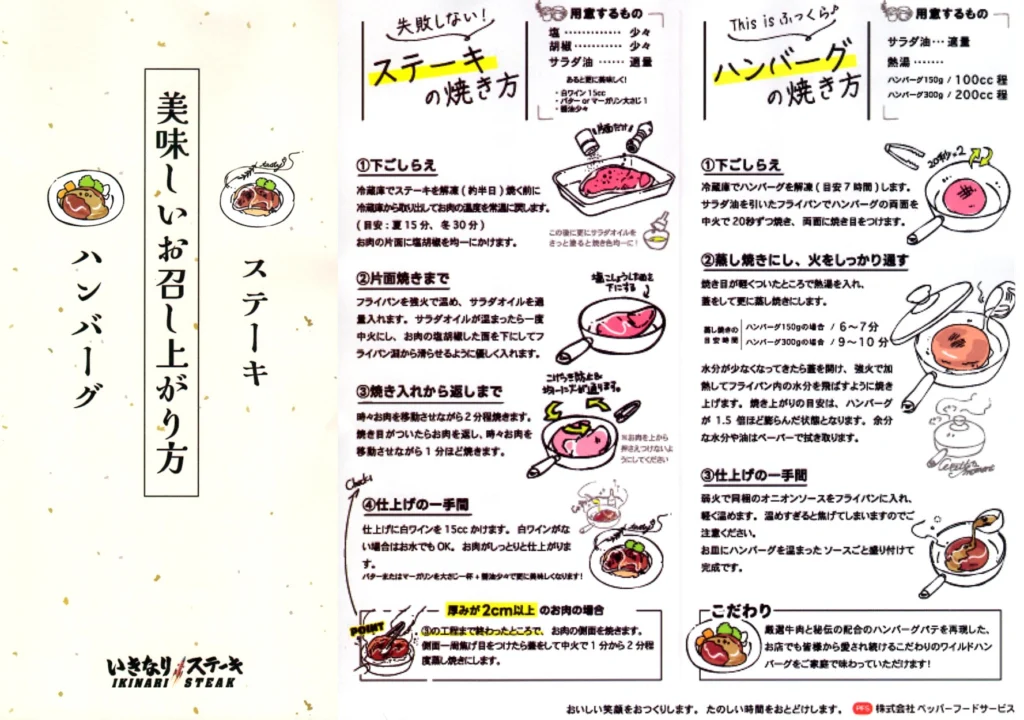 美味しいお召し上がり方
ステーキ
ハンバーグ
いきなりステーキ
IKINARI STEAK
失敗しない!
ステーキ
の焼き方
用意するもの
塩 ………… 少々
胡椒 ………… 少々
サラダ油 …… 適量
あると更に美味しく!
・白ワイン 15cc
・バター or マーガリン大さじ 1
・醤油少々
①下ごしらえ
片面だけ
冷蔵庫でステーキを解凍 ( 約半日 ) 焼く前に
冷蔵庫から取り出してお肉の温度を常温に戻します。
( 目安 : 夏 15 分、冬 30 分 )
お肉の片面に塩胡椒を均一にかけます。
この後に更にサラダオイルを
さっと塗ると焼き色均一に!
②片面焼きまで
塩こしょうした面を
下にする
フライパンを強火で温め、サラダオイルを適
量入れます。サラダオイルが温まったら一度
中火にし、お肉の塩胡椒した面を下にしてフ
ライパン淵から滑らせるように優しく入れます。
③焼き入れから返しまで
こげつき防止&
均一に火が通ります。
時々お肉を移動させながら2分程焼きます。
焼き目がついたらお肉を返し、時々お肉を
移動させながら 1 分ほど焼きます。
※お肉を上から
押さえつけないよ
うにしてください
Check
④仕上げの一手間
仕上げに白ワインを 15cc かけます。白ワインがな
い場合はお水でも OK。お肉がしっとりと仕上がりま
す。
バターまたはマーガリンを大さじ一杯 + 醤油少々で更に美味しくなります!
厚みが2cm以上 のお肉の場合
POINT
③の工程まで終わったところで、お肉の側面を焼きます。
側面一周焦げ目をつけたら蓋をして中火で 1 分から 2 分程
度蒸し焼きにします。
This is ふっくら♪
ハンバーグ
の焼き方
用意するもの
サラダ油… 適量
熱湯 ……
ハンバーグ150g / 100cc 程
ハンバーグ300g / 200cc 程
①下ごしらえ
20秒×2
冷蔵庫でハンバーグを解凍 ( 目安 7 時間 ) します。
サラダ油を引いたフライパンでハンバーグの両面を
中火で 20秒ずつ焼き、両面に焼き目をつけます。
②蒸し焼きにし、火をしっかり通す
焼き目が軽くついたところで熱湯を入れ、
蓋をして更に蒸し焼きにします。
蒸し焼きの
目安時間
ハンバーグ150gの場合 / 6〜7分
ハンバーグ300gの場合 / 9〜10 分
水分が少なくなってきたら蓋を開け、強火で加
熱してフライパン内の水分を飛ばすように焼き
上げます。焼き上がりの目安は、ハンバーグ
が 1.5 倍ほど膨らんだ状態となります。余分
な水分や油はペーパーで拭き取ります。
③仕上げの一手間
弱火で同梱のオニオンソースをフライパンに入れ、
軽く温めます。温めすぎると焦げてしまいますのでご
注意ください。
お皿にハンバーグを温まったソースごと盛り付けて
完成です。
こだわり
厳選牛肉と秘伝の配合のハンバーグパテを再現した、
お店でも皆様から愛され続けるこだわりのワイルドハン
バーグをご家庭で味わっていただけます!
おいしい笑顔をおつくりします。たのしい時間をおとどけします。 PFS 株式会社 ペッパーフードサービス